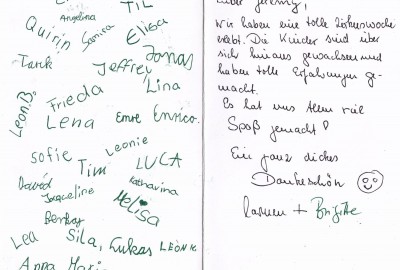 TIL
Angelina
Quirin
Samira
Elisa
Tarik
Jeffrey
Jonas
Leon B.
Frieda
Lina
Lena
Emre
Enrico
Leonie
Sofie
Tim
LUCA
David
Jacqueline
Katharina
Melisa
Berkay
Lea
Sila,
Lukas
LEON K.
Anna
Marie
Jeremy,
wir haben eine tolle Zirkuswoche
erlebt. Die Kinder sind über
sich hinaus gewachsen und
haben tolle Erfahrungen ge-
macht.
Es hat uns allen viel
Spaß gemacht!
Ein ganz dickes
Dankeschön
+ Brigitte